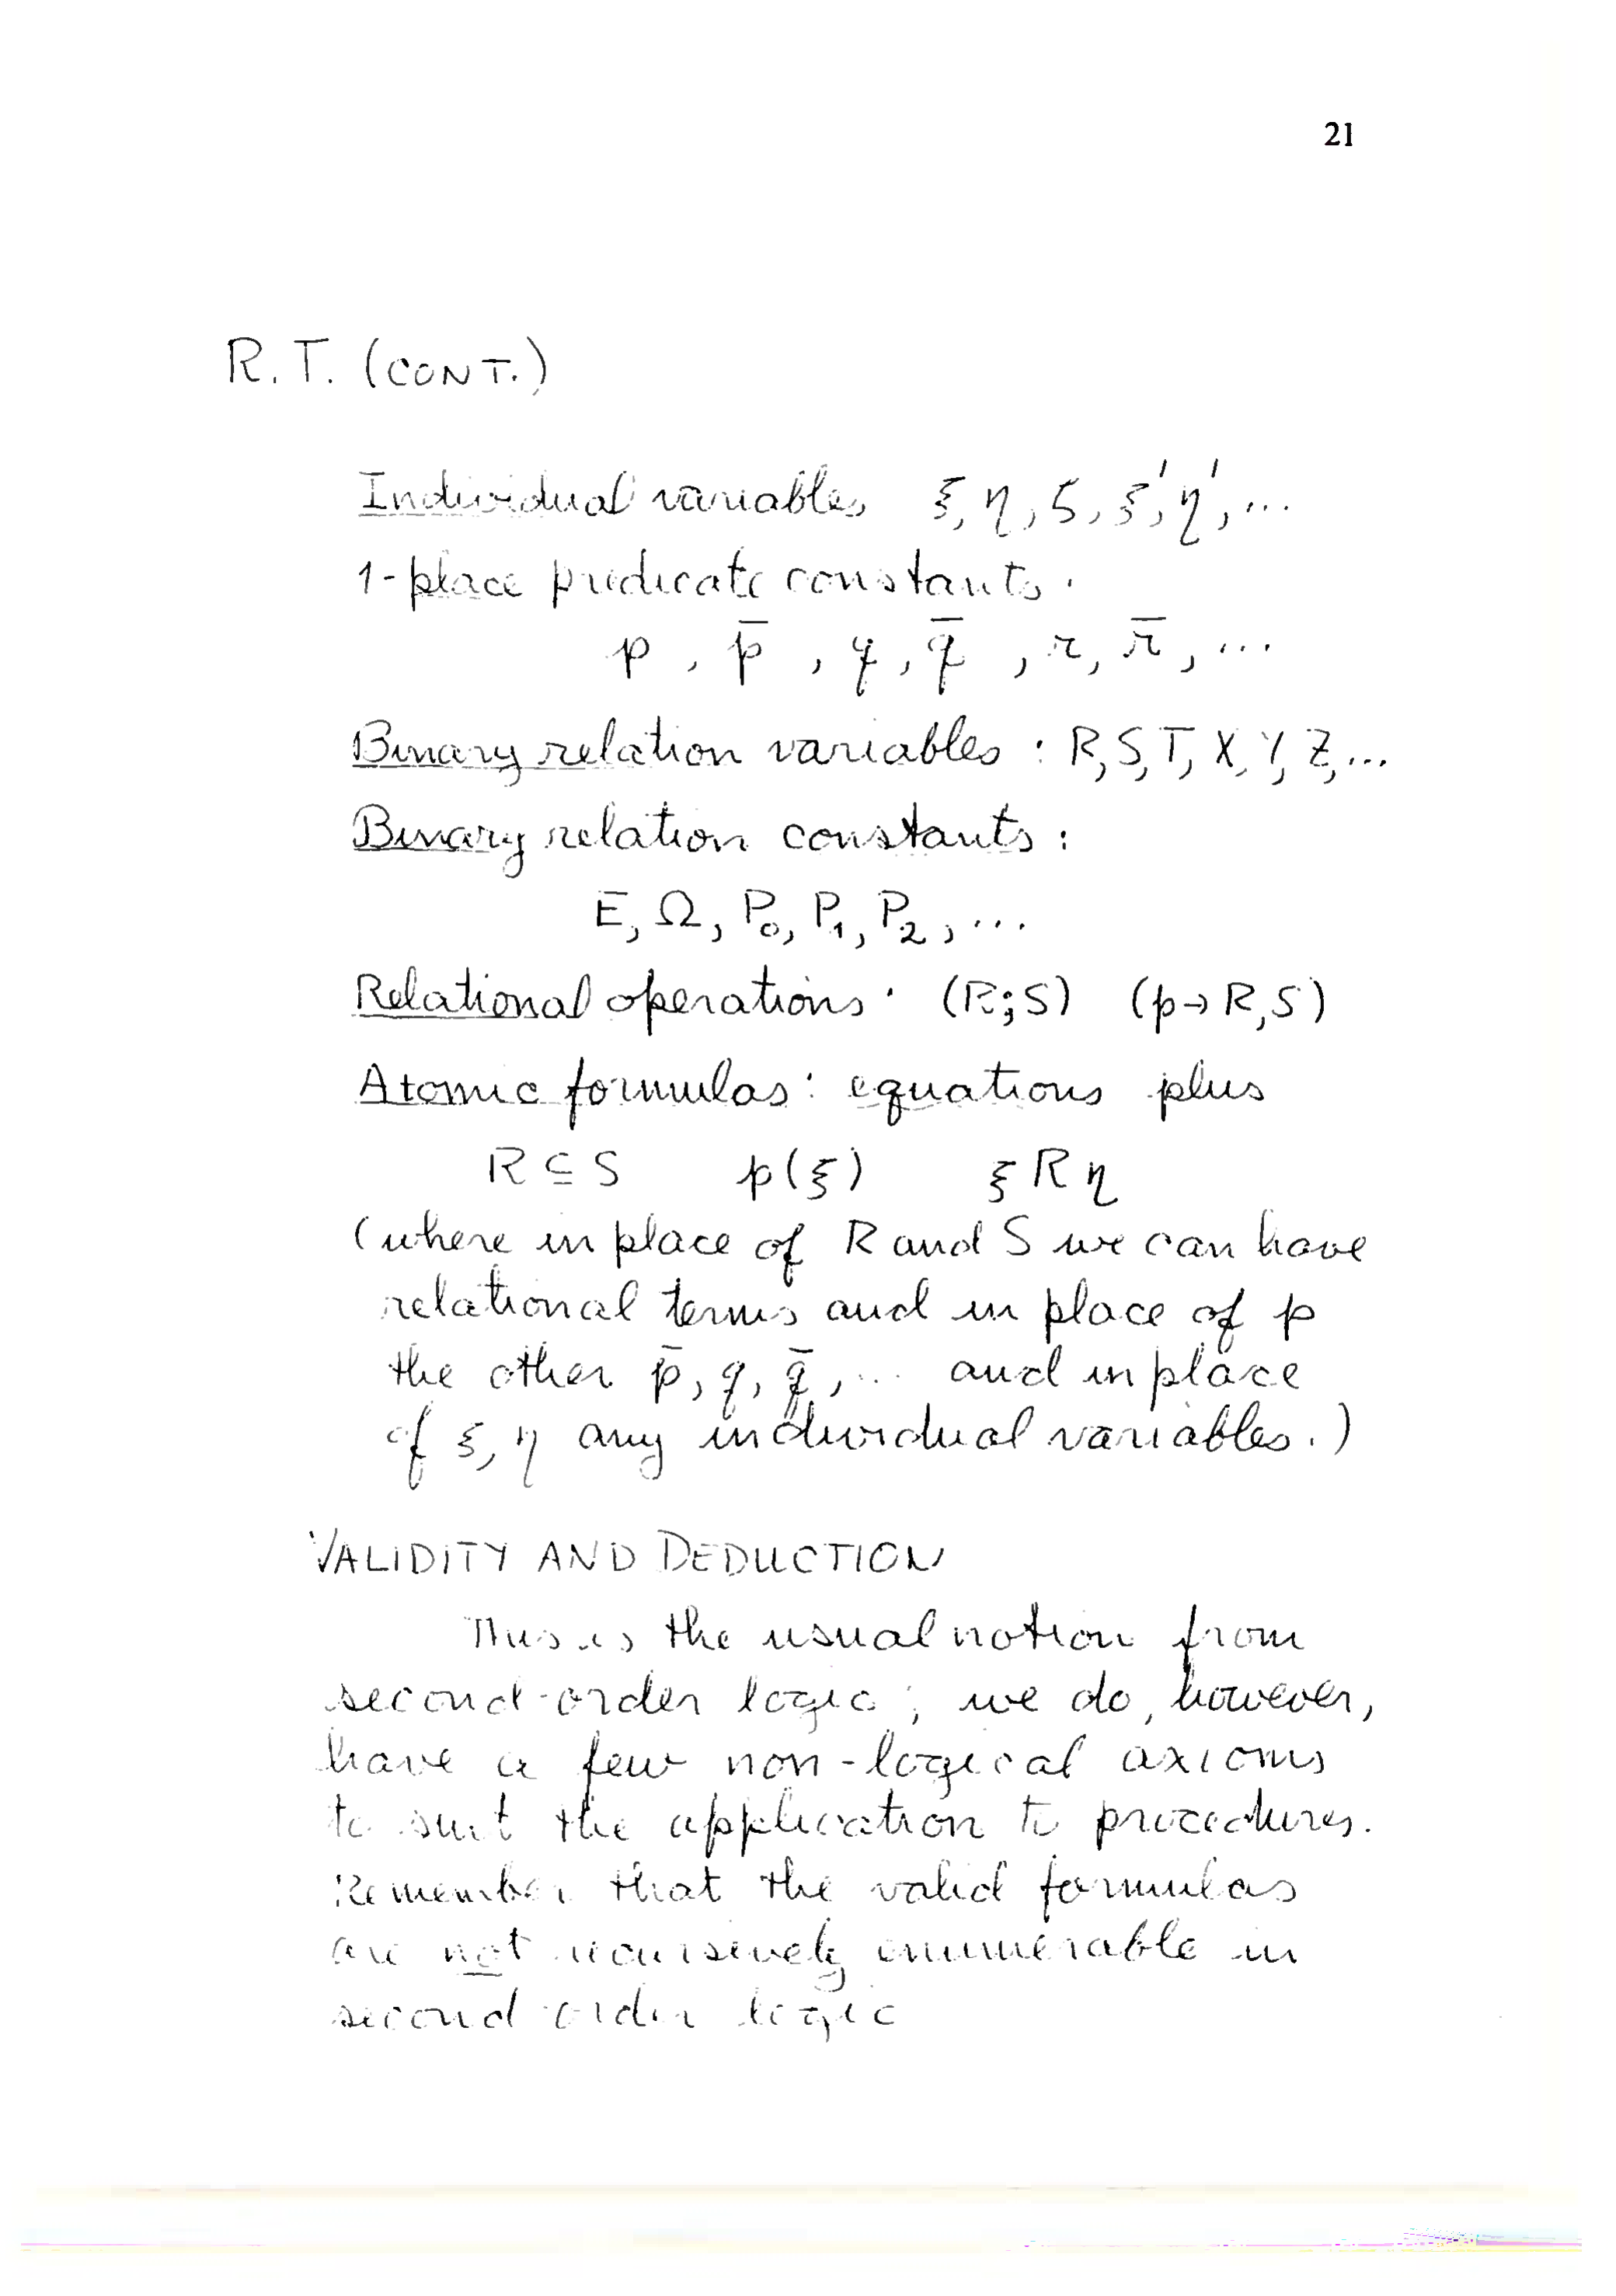 21
R.T. (CONT.)
Individual variables ξ, η, ζ, ξ', η', ...
1-place predicate constants:
p, p̄, q, q̄, r, r̄, ...
Binary relation variables : R, S, T, X, Y, Z, ...
Binary relation constants :
E, Ω, P₀, P₁, P₂, ...
Relational operations: (R;S) (p→R,S)
Atomic formulas: equations plus
R ⊆ S p(ξ) ξ R η
(where in place of R and S we can have
relational terms and in place of p
the other p̄, q, q̄, ... and in place
of ξ, η any individual variables.)
VALIDITY AND DEDUCTION
This is the usual notion from
second-order logic; we do, however,
have a few non-logical axioms
to suit the application to procedures.
Remember that the valid formulas
are not recursively enumerable in
second order logic